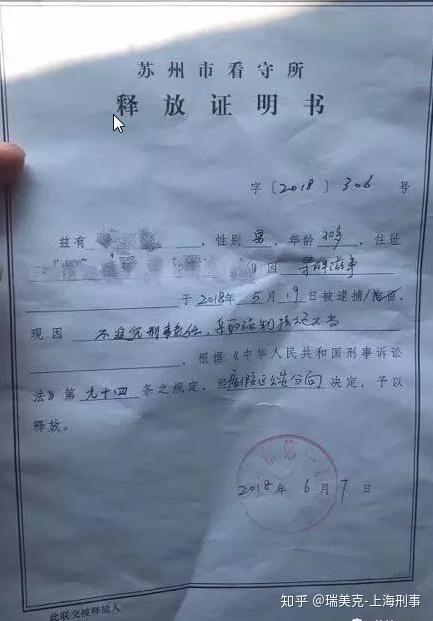 苏州市看守所
释放证明书
字〔2018〕306号
兹有，性别男，年龄，住址
因寻衅滋事
于2018年5月19日被逮捕/拘留，
现因不追究刑事责任，
，根据《中华人民共和国刑事诉讼
法》第九十四条之规定，经公安分局决定，予以
释放。
2018年6月7日
此联交被释放人
知乎 @瑞美克-上海刑事